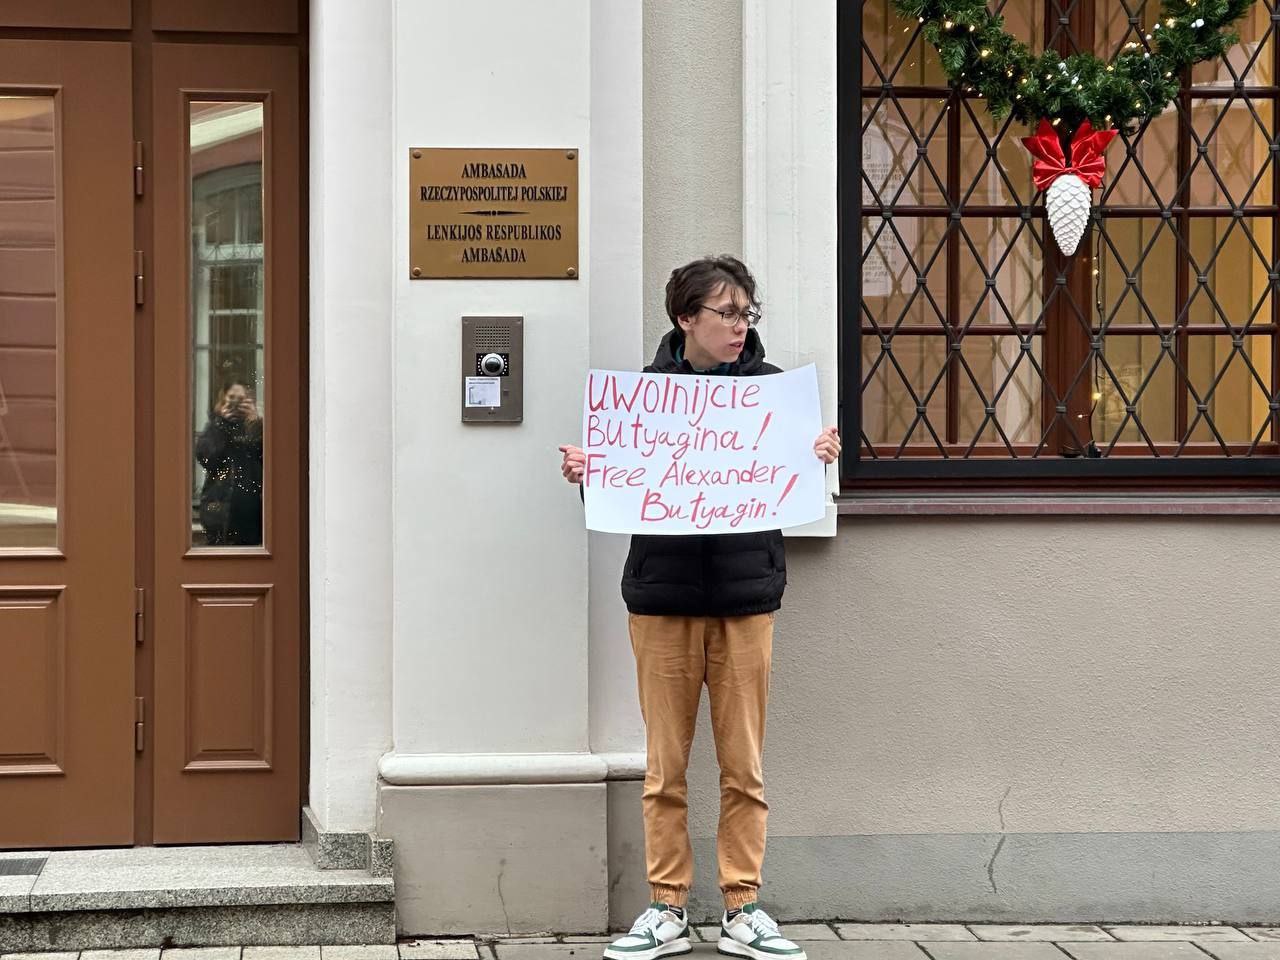 AMBASADA
RZECZYPOSPOLITEJ POLSKIEJ
LENKIJOS RESPUBLIKOS
AMBASADA
Uwolnijcie
Butyagina!
Free Alexander
Butyagin!